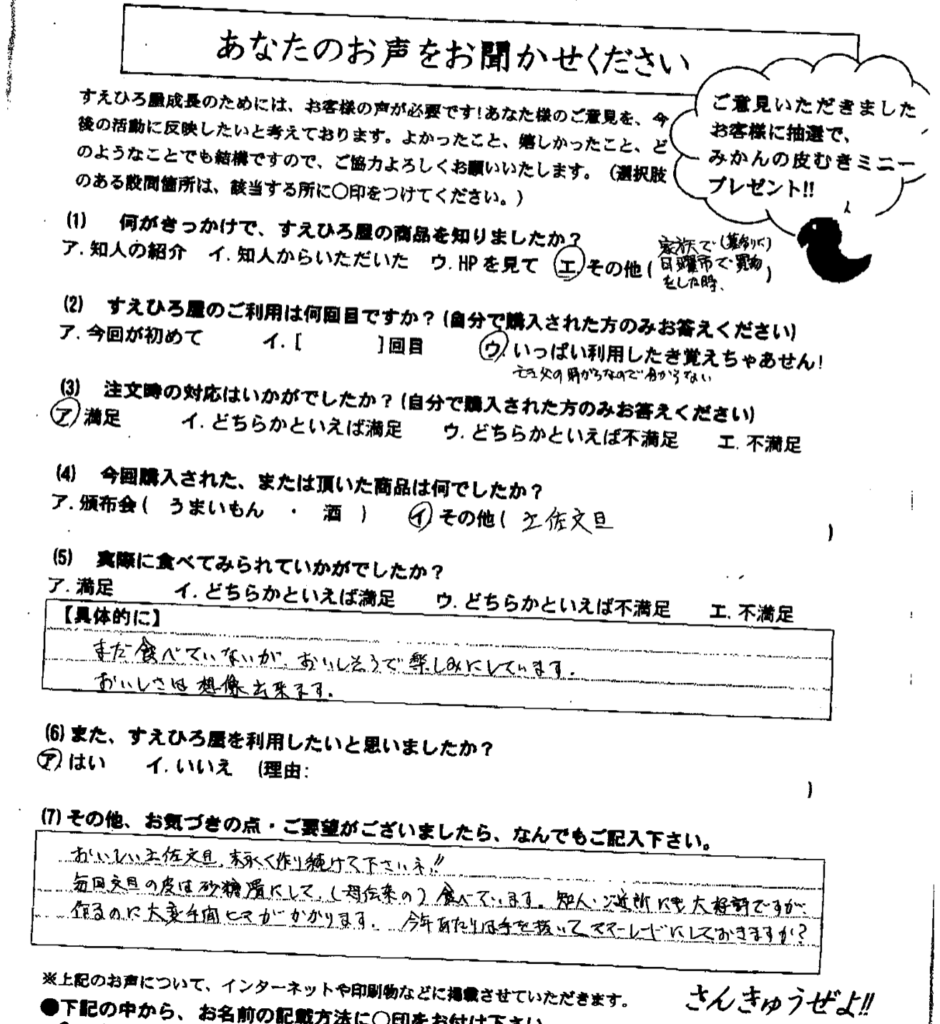 あなたのお声をお聞かせください
すえひろ屋成長のためには、お客様の声が必要です!あなた様のご意見を、今
後の活動に反映したいと考えております。よかったこと、嬉しかったこと、ど
のようなことでも結構ですので、ご協力よろしくお願いいたします。(選択肢
のある設問箇所は、該当する所に〇印をつけてください。)
ご意見いただきました
お客様に抽選で、
みかんの皮むきミニー
プレゼント!!
(1) 何がきっかけで、すえひろ屋の商品を知りましたか?
ア.知人の紹介 イ.知人からいただいた ウ.HPを見て エ.その他(
家族で(墓参りに)
日曜市で買物
をした時、
)
(2) すえひろ屋のご利用は何回目ですか?(自分で購入された方のみお答えください)
ア.今回が初めて イ.[ ]回目 ウ.いっぱい利用したき覚えちゃあせん!
亡き父の時からなので分からない
(3) 注文時の対応はいかがでしたか?(自分で購入された方のみお答えください)
ア.満足 イ.どちらかといえば満足 ウ.どちらかといえば不満足 エ.不満足
(4) 今回購入された、または頂いた商品は何でしたか?
ア.頒布会( うまいもん ・ 酒 ) イ.その他( 土佐文旦 )
(5) 実際に食べてみられていかがでしたか?
ア.満足 イ.どちらかといえば満足 ウ.どちらかといえば不満足 エ.不満足
【具体的に】
まだ食べていないが、おいしそうで楽しみにしています。
おいしさは想像出来ます。
(6)また、すえひろ屋を利用したいと思いましたか?
ア.はい イ.いいえ (理由: )
(7)その他、お気づきの点・ご要望がございましたら、なんでもご記入下さい。
おいしい土佐文旦、末永く作り続けて下さいネ!!
毎回文旦の皮は砂糖漬にして、(母伝来の)食べています。知人・ご近所にも大好評ですが、
作るのに大変手間ヒマがかかります。 今年あたりは手を抜いてママーレードにしておきますか?
※上記のお声について、インターネットや印刷物などに掲載させていただきます。
さんきゅうぜよ!!
●下記の中から、お名前の記載方法に〇印をお付け下さい